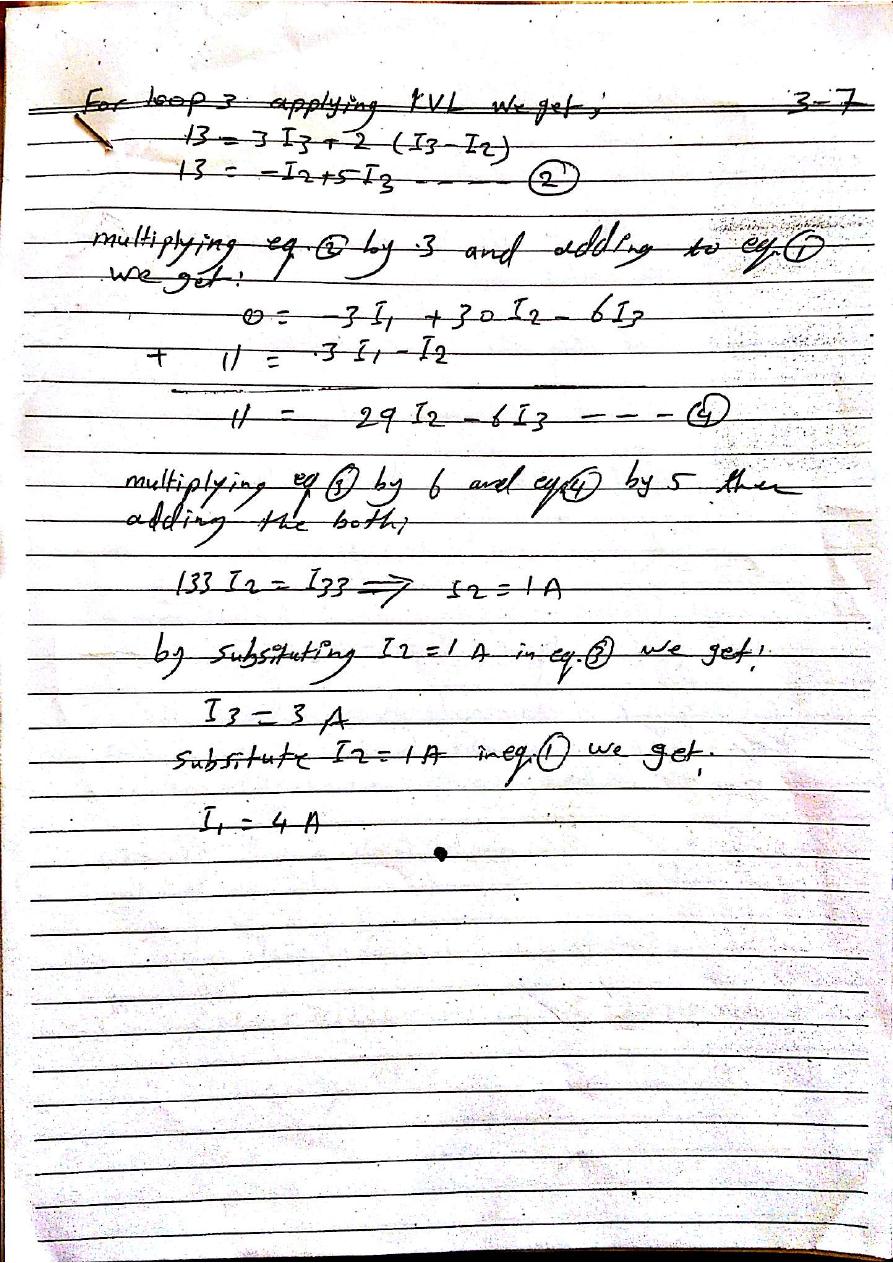 For loop 3 applying KVL we get; 3-7
13 = 3 I3 + 2 (I3 - I2)
13 = -I2 + 5 I3 ------ (2)
multiplying eq. (2) by 3 and adding to eq. (1)
we get:
0 = -3 I1 + 30 I2 - 6 I3
+ 11 = 3 I1 - I2
11 = 29 I2 - 6 I3 --- (4)
multiplying eq (3) by 6 and eq. (4) by 5 then
adding the both;
133 I2 = I33 ⇒ I2 = 1 A
by subsituting I2 = 1 A in eq. (3) we get!
I3 = 3 A
subsitute I2 = 1 A in eq. (1) we get.
I1 = 4 A